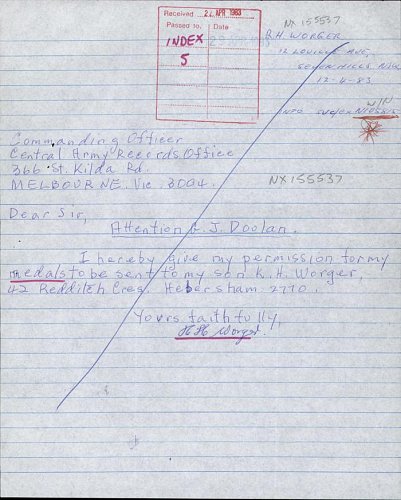 Received 22 APR 1983
Passed to Date
INDEX
5
NX 155537
R.H. WORGER
AVE,
SEVEN HILLS, NSW
12-4-83
Commanding Officer
Central Army Records Office
366 St. Kilda Rd.
MELBOURNE. Vic. 3004.
NX155537
Dear Sir,
Attention J. Doolan.
I hereby give my permission for my
medals to be sent to my son K. H. Worger,
42 Redditch Cres. Hebersham 2770.
Yours faithfully,
Worger